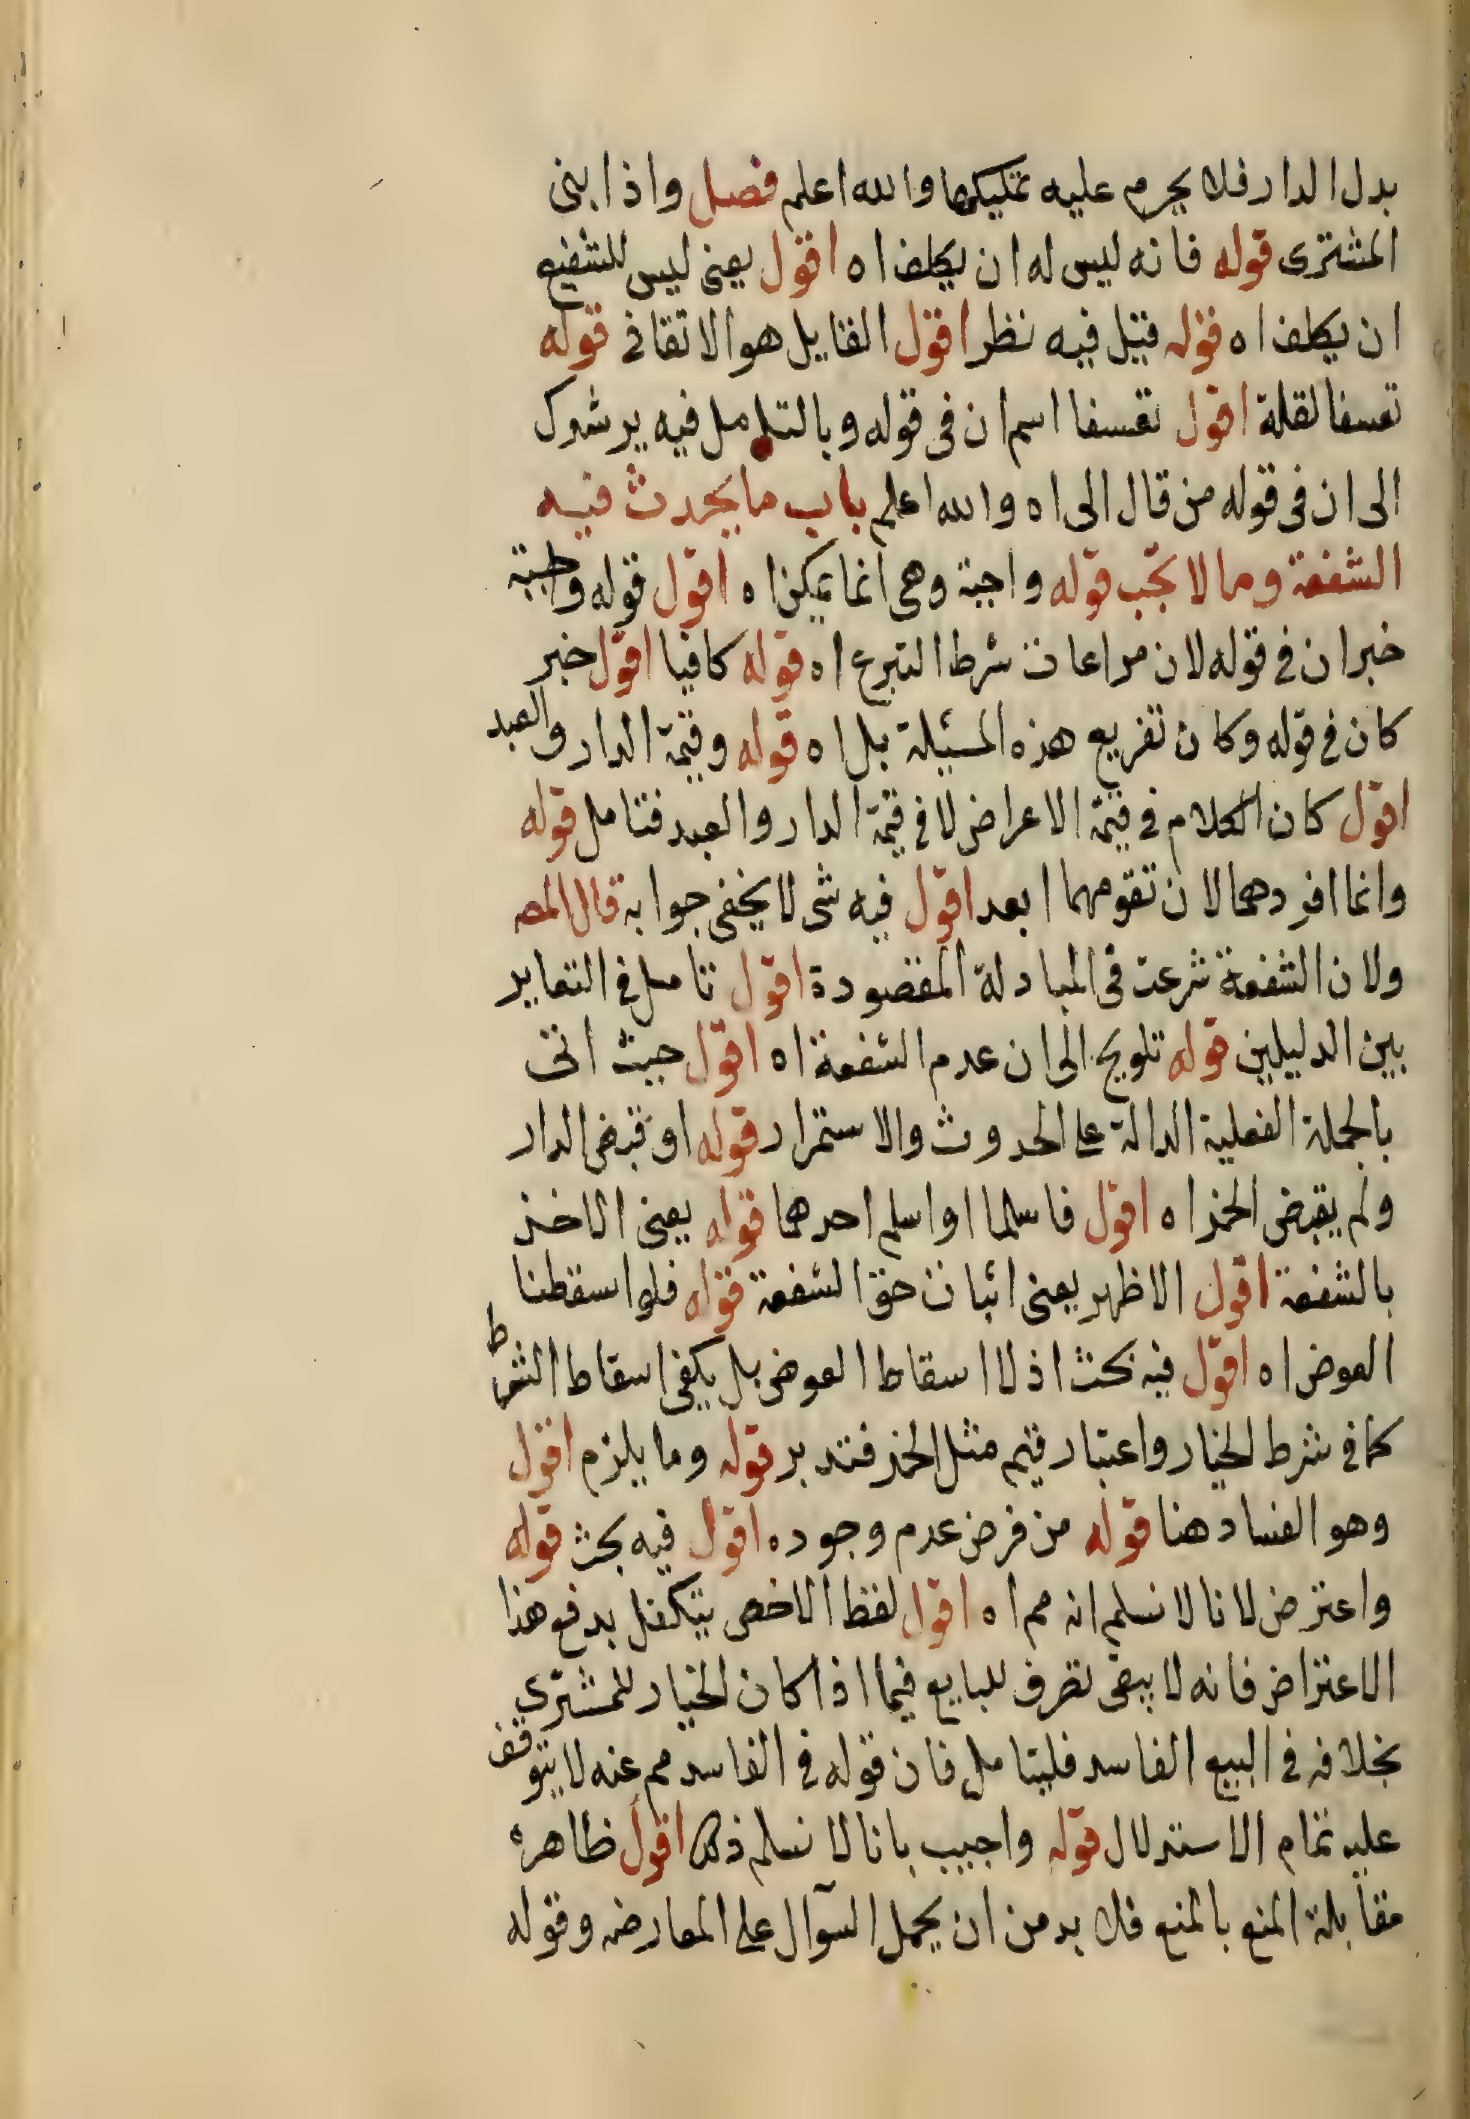 بدل الدار فلا يحرم عليه تمليكها والله اعلم فصل واذا بنى
المشترى قوله فانه ليس له ان يكلف اه اقول يعنى ليس للشفيع
ان يكلف اه قوله قيل فيه نظر اقول القايل هو الاتقانى قوله
تعسفا لقلة اقول تعسفا اسم ان فى قوله وبالتامل فيه يرشدك
الى ان فى قوله من قال الى اه والله اعلم باب ما يحدث فيه
الشفعة وما لا يجب قوله واجبة وهى انما يمكن اه اقول قوله واجبة
خبر ان فى قوله لان مراعات شرط التبرع اه قوله كافيا اقول خبر
كان فى قوله وكان تفريع هذه المسئلة بل اه قوله وقيمة الدار والعبد
اقول كان الكلام فى قيمة الاعراض لا فى قيمة الدار والعبد فتامل قوله
وانما افردهما لان تقومهما ابعد اقول فيه شى لا يخفى جوابه قال المصه
ولان الشفعة شرعت فى المبادلة المقصودة اقول تامل فى التغاير
بين الدليلين قوله تلويح الى ان عدم الشفعة اه اقول حيث اتى
بالجملة الفعلية الدالة على الحدوث والاستمرار قوله او قبض الدار
ولم يقبض الخمر اه اقول فاسلما او اسلم احدهما قوله يعنى الاخذ
بالشفعة اقول الاظهر يعنى اثبات حق الشفعة قوله فلو اسقطنا
العوض اه اقول فيه بحث اذ لا اسقاط العوض بل يكفى اسقاط الشرط
كما فى شرط الخيار واعتبار قيم مثل الخمر فتدبر قوله وما يلزم اقول
وهو الفساد هنا قوله من فرض عدم وجوده اقول فيه بحث قوله
واعترض لانا لا نسلم انه مم اه اقول لفظ الاخص يتكفل بدفع هذا
الاعتراض فانه لا يبقى تصرف للبايع فيما اذا كان الخيار للمشترى
بخلافه فى البيع الفاسد فليتامل فان قوله فى الفاسد مم عنه لا يتوقف
عليه تمام الاستدلال قوله واجيب بانا لا نسلم ذلك اقول ظاهره
مقابلة المنع بالمنع فلا بد من ان يحمل السؤال على المعارضه وقوله